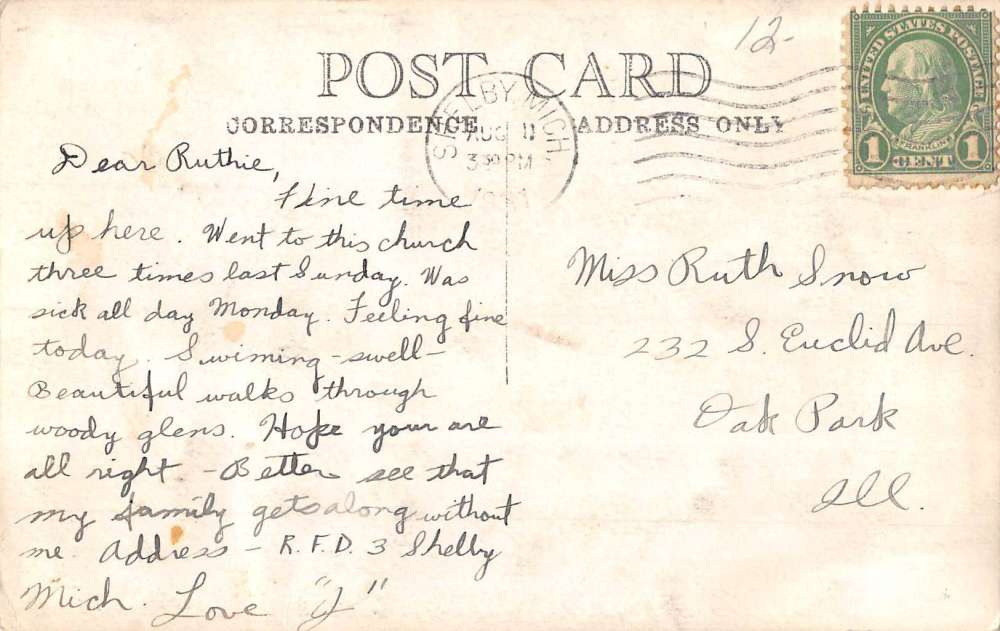 12-
UNITED STATES POSTAGE
FRANKLIN
1 CENT 1
POST CARD
CORRESPONDENCE
ADDRESS ONLY
SHELBY, MICH.
AUG 11
3 30 PM
Dear Ruthie,
Fine time
up here. Went to this church
three times last Sunday. Was
sick all day Monday. Feeling fine
today. Swiming - swell -
Beautiful walks through
woody glens. Hope your are
all right - Better see that
my family gets along without
me. Address - R.F.D. 3 Shelby
Mich. Love "J"
Miss Ruth Snow
232 S. Euclid Ave.
Oak Park
Ill.